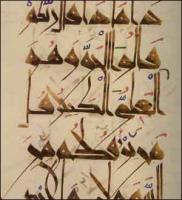 ماذا قال ربكم
قالوا الحق وهو
العلي الكبير قل
من يرزقكم من
السموت